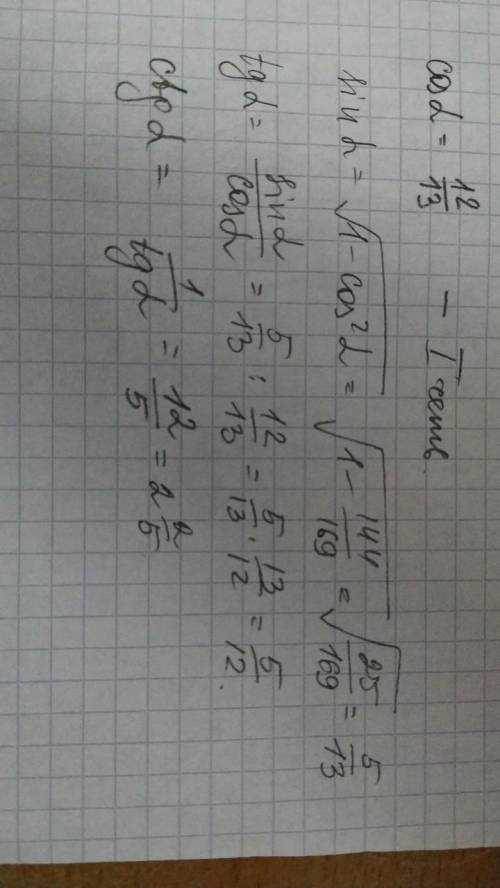 cos α = 12/13 – I четв.
sin α = √(1 - cos²α) = √(1 - 144/169) = √(25/169) = 5/13
tg α = sin α / cos α = 5/13 : 12/13 = 5/13 · 13/12 = 5/12.
ctg α = 1/tg α = 12/5 = 2 2/5